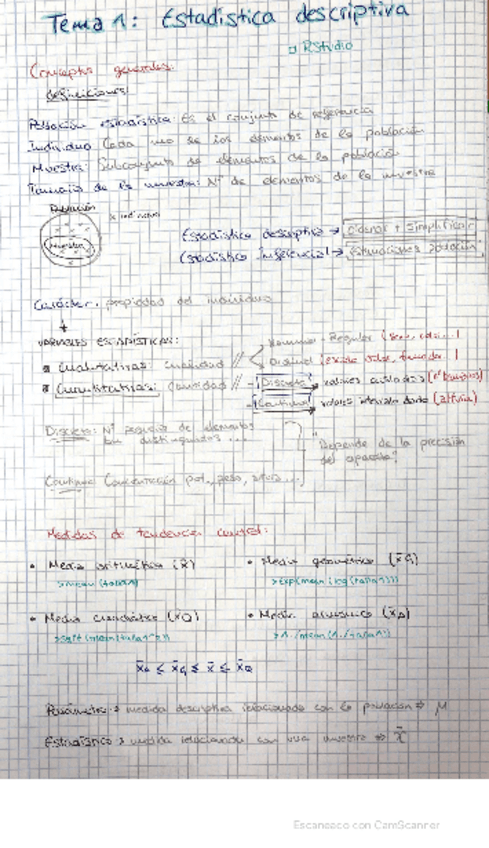 Tema 1: Estadística descriptiva
RStudio
Conceptos generales:
definiciones:
Población estadística: Es el conjunto de referencia
Individuo: Cada uno de los elementos de la población
Muestra: Subconjunto de elementos de la población
Tamaño de la muestra: Nº de elementos de la muestra
Población
x individuo
Muestra
Estadística descriptiva → ordenar + simplificar
Estadística Inferencial →
Carácter: propiedad del individuo
VARIABLES ESTADÍSTICAS:
Cualitativas: cualidad // Nominal - Regular (sexo, color...)
Ordinal
Cuantitativas: cantidad // - Discreta → valores aislados
- Continua → valores intervalo dado (altura)
Discreta: Nº pequeño de elementos
bien distinguidos ...
"Depende de la precisión
del aparato"
Continua: Concentración peso, altura...
Medidas de tendencia central:
• Media aritmética (x̄)
• Media geométrica (x̄G)
>mean(talla)
>exp(mean(log(talla)))
• Media cuadrática (x̄Q)
• Media armónica (x̄A)
x̄A ≤ x̄G ≤ x̄ ≤ x̄Q
Parámetro: medida descriptiva relacionada con la población ⇒ μ
Estadístico: medida relacionada con una muestra ⇒ x̄
Escaneado con CamScanner